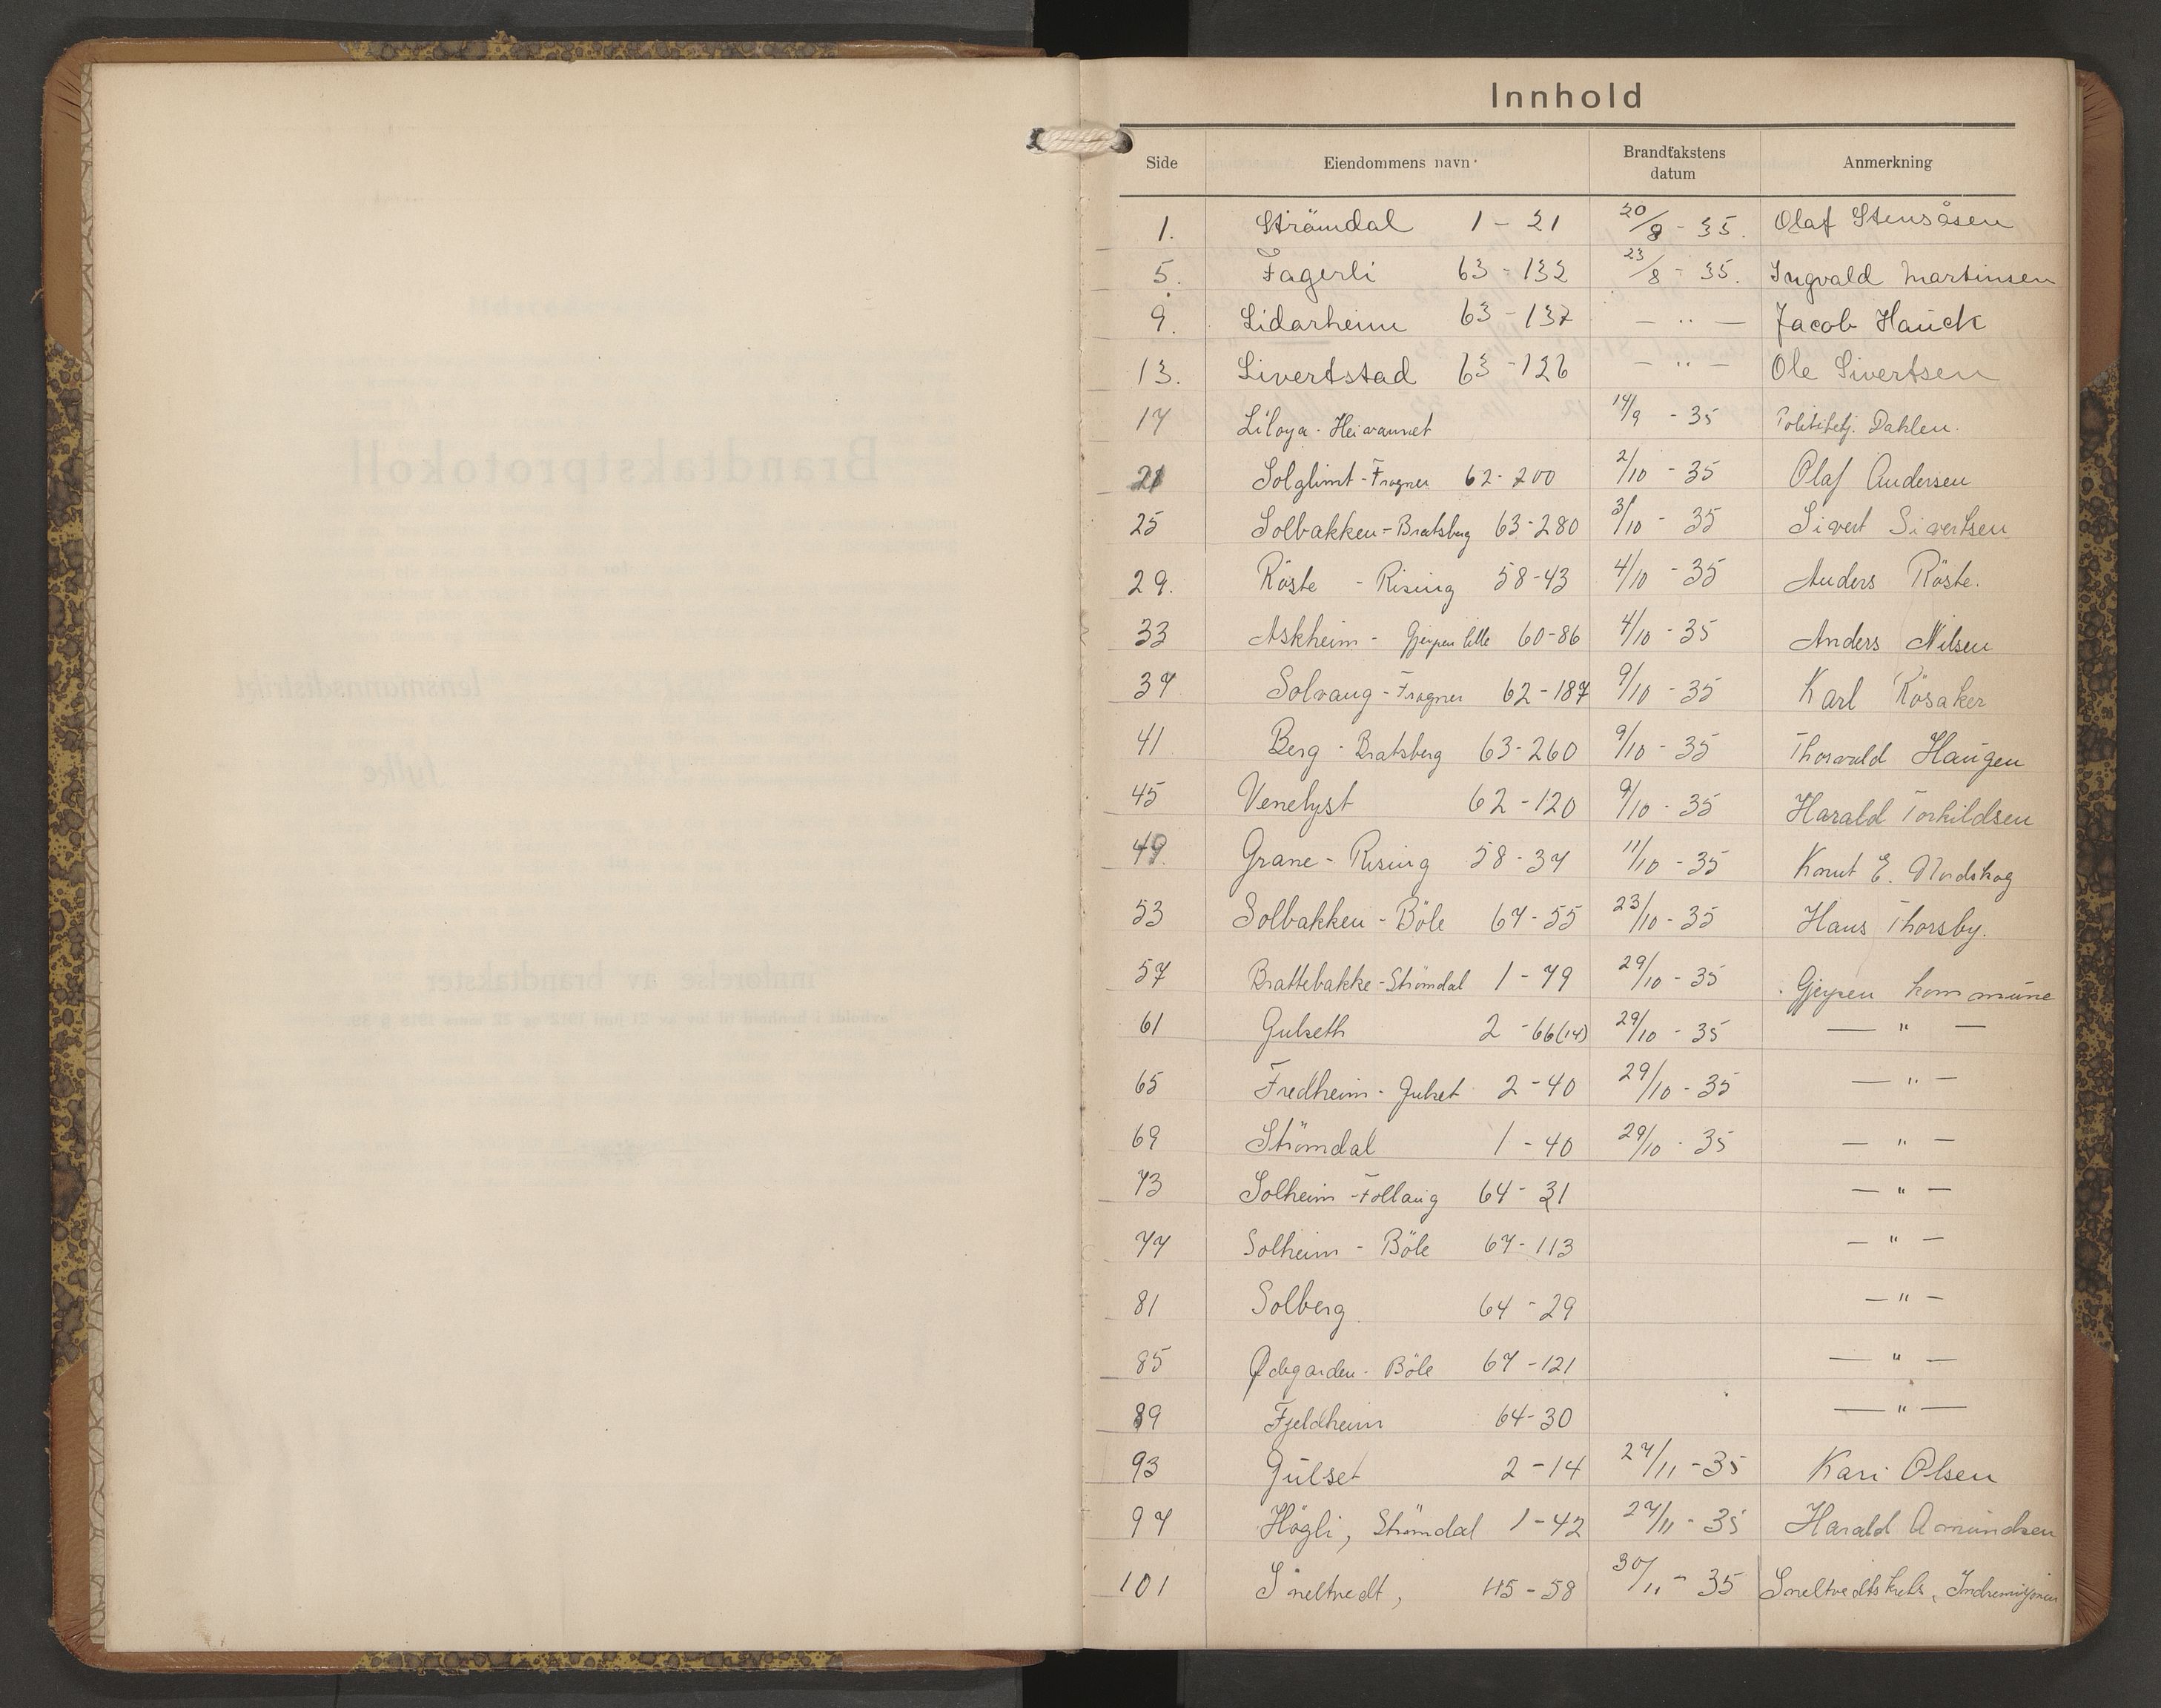 Innhold
Side Eiendommens navn Brandtakstens datum Anmerkning
1. Strömdal 1 - 21 20/8 - 35. Olaf Stensåsen
5. Fagerli 63 - 132 23/8 - 35. Ingvald Martinsen
9. Lidarheim 63 - 137 - " - Jacob Hauck
13. Sivertstad 63 - 126 - " - Ole Sivertsen
17 Liløya - Heivannet 14/9 - 35 Politibetj. Dahlen.
21 Solglimt - Frogner 62 - 200 2/10 - 35 Olaf Andersen
25 Solbakken - Bratsberg 63 - 280 3/10 - 35 Sivert Sivertsen
29. Röste - Rising 58 - 43 4/10 - 35 Anders Röste.
33 Askheim - Gjerpen lille 60 - 86 4/10 - 35 Anders Nilsen
37 Solvang - Frogner 62 - 187 9/10 - 35 Karl Rösaker
41 Berg - Bratsberg 63 - 260 9/10 - 35 Thorvald Haugen
45 Venelyst 62 - 120 9/10 - 35 Harald Torkildsen
49. Grane - Rising 58 - 37 11/10 - 35 Knut E. Nordskog
53 Solbakken - Böle 67 - 55 23/10 - 35 Hans Thorsby.
57 Brattebakke - Strömdal 1 - 79 29/10 - 35 Gjerpen kommune
61 Gulseth 2 - 66(14) 29/10 - 35 - " -
65 Fredheim - Gulset 2 - 40 29/10 - 35 - " -
69 Strömdal 1 - 40 29/10 - 35 - " -
73 Solheim - Follaug 64 - 31 - " -
77 Solheim - Böle 67 - 113 - " -
81 Solberg 64 - 29 - " -
85 Ødegarden - Böle 67 - 121 - " -
89 Fjeldheim 64 - 30 - " -
93 Gulset 2 - 14 27/11 - 35 Kari Olsen
97 Högli, Strömdal 1 - 42 27/11 - 35 Harald Amundsen
101 Sneltvedt, 45 - 58 30/11 - 35 Sneltvedts